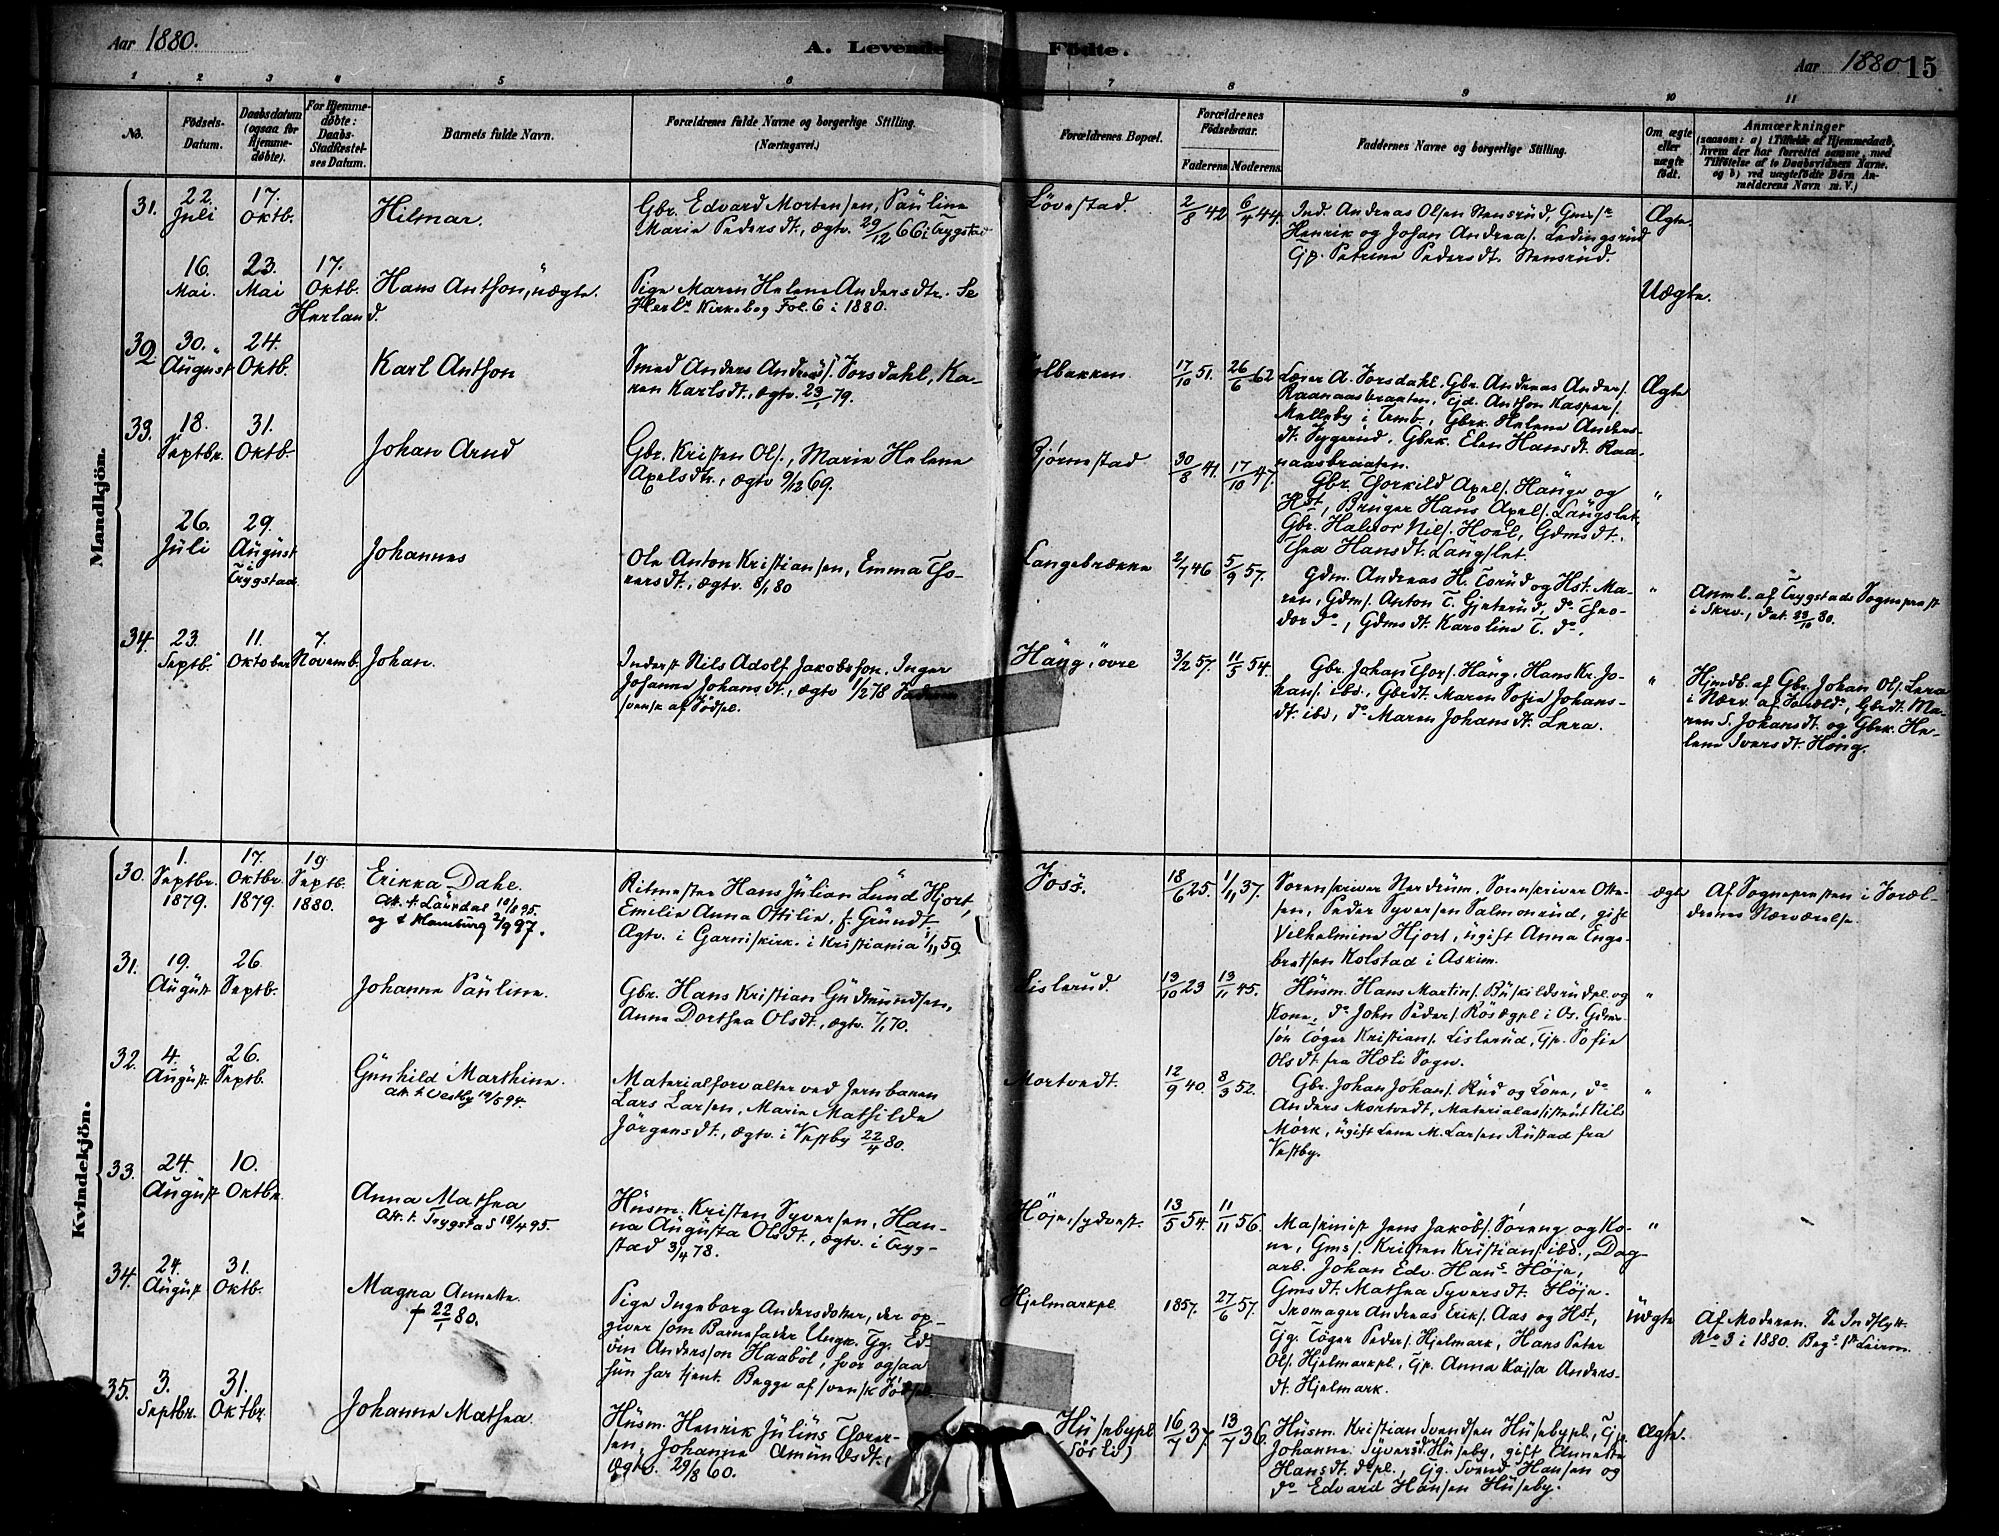 Aar 1880.
A. Levende Födte.
Aar 1880 15
1 2 3 4 5 6 7 8 9 10 11
No.
Födsels-Datum.
Daabsdatum (ogsaa for Hjemmedöbte).
For Hjemmedöbte: Daabs-Stadfæstelses Datum.
Barnets fulde Navn.
Forældrenes fulde Navne og borgerlige Stilling. (Næringsvei.)
Forældrenes Bopæl.
Forældrenes Fødselsaar.
Faderens Moderens
Faddernes Navne og borgerlige Stilling.
Om ægte eller uægte födt.
Anmærkninger
(saasom: a) i Tilfælde af Hjemmedaab,
hvem der har forrettet samme, med
Tilföielse af to Daabsvidners Navne,
og b) ved uægtefödte Börn An-
melderens Navn m. V.)
Mandkjön.
31. 22. Juli 17. Oktb.
Hilmar.
Gbr. Edvard Mortensen, Pauline
Marie Pedersdt., ægtv. 29/12 66 i Trygstad
Løvestad. 2/8 42 6/4 44.
Ind. Andreas Olsen Stensrud, Gmss
Henrik og Johan Andreas. Ledingsrud
Gjp. Petrine Pedersdt. Stensrud.
Ægte.
16. Mai. 23. Mai 17. Oktb. Herland.
Hans Anthon, uægte.
Pige Maren Helene Andersdtr. Se
Herl. Kirkebog Fol. 6 i 1880.
Uægte.
32 30. August 24. Oktb.
Karl Anthon
Smed Anders Andreas. Forsdahl, Ka-
ren Karlsdt., ægtv. 23/1 79.
Kolbakken. 17/10 51. 26/6 62
A. Forsdahl, Gbr. Andreas Anders.
Raanaasbraaten, Gd. Anthon Kaspers.
Melleby i Trmb., Gbrk. Helene Anders-
dt. Gbrk. Elen Hansdt. Raa-
naasbraaten.
Ægte
33. 18. Septbr. 31. Oktb.
Johan Arnd
Gbr. Kristen Ols., Marie Helene
Axelsdtr., ægtv. 9/12 69.
Bjørnestad 30/8 41. 17/10 47.
Gbr. Thorkild Axels. Haug og
Hst., Bruger Hans Axels. Langslet,
Gbr. Halvor Nils. Hoel, Gdmsdt.
Thea Hansdt. Langslet.
"
26. Juli 29. August i Trygstad
Johannes
Ole Anton Kristiansen, Emma Tho-
rersdt., ægtv. 8/1 80
Langebrække 2/7 46 5/9 57.
Gdm. Andreas H. Torud og Hst. Ma-
ren, Gdms. Anton T. Gjeterud, do Theo-
dor do, Gdmsdt. Karoline T. do.
"
Anml. af Trygstads Sogneprest
i Skrv., dat. 23/10 80.
34. 23. Septb. 11. Oktober 7. Novemb.
Johan.
Inderst Nils Adolf Jakobsson, Inger
Johanne Johansdt., ægtv. 1/2 78 Faderen
svensk af Fødsel.
Haug, øvre 3/2 57. 11/5 54.
Gbr. Johan Thors. Haug, Hans Kr. Jo-
hans. ibd., Gbrdt. Maren Sofie Johans-
dt. ibd, do Maren Johansdt. Lera.
"
Hjmdb. af Gbr. Johan Ols. Lera
i Nærv. af Foræld., Gbrdt. Ma-
ren S. Johansdt. og Gbrk. He-
lene Iversdt. Haug.
Kvindekjön.
30. 1. Septbr. 1879. 17. Oktbr. 1879. 19. Septb. 1880.
Erikka Dahe.
Att. t. Laurdal 10/8 95.
og t. Hamburg 2/9 97.
Ritmester Hans Julian Lund Hjort,
Emilie Anna Ottilie, f. Grundt,
Ægtv. i Garniskirk. i Kristiania 1/11 59.
Foss. 18/6 25. 1/11 37.
Sorenskriver Nerdrum, Sorenskriver Otte-
sen, Peder Syversen Salmonrud, gift
Vilhelmine Hjort, ugift Anna Enge-
bretsen Kolstad i Askim.
ægte
Af Sognepresten i Foræl-
drenes Nærværelse.
31. 19. August 26. Septb.
Johanne Pauline.
Gbr. Hans Kristian Gudmundsen,
Anne Dorthea Olsdt., ægtv. 7/1 70.
Lislerud. 13/10 23 13/11 45.
Husm. Hans Martins. Buskildsrudpl. og
Kone, do John Peders. i Os. Gdm-
søn Tøger Kristians. Lislerud, Gjp. Sofie
Olsdt. fra Hæli Sogn.
"
32. 4. August. 26. Septb.
Gunhild Marthine.
Att. t. Vestby 19/5 94.
Materialforvalter ved Jernbanen
Lars Larsen, Marie Mathilde
Jörgensdt., ægtv. i Vestby 22/4 80.
Mortvedt. 12/9 40 8/3 52.
Gbr. Johan Johans. Rud og Kone, do
Anders Mortvedt, Materialassistent Nils
Mørk, ugift Lene M. Larsen Rustad fra
Vestby.
"
33. 24. August 10. Oktbr.
Anna Mathea
Att. t. Trygstad 18/4 95.
Husm. Kristen Syversen, Han-
na Augusta Olsdt., ægtv. i Tryg-
stad 3/4 78.
Høje, sydvest. 13/5 54. 11/11 56.
Maskinist Jens Jakobs. Søreng og Ko-
ne, Gms. Kristen Kristians. ibd., Dag-
arb. Johan Edv. Hans. Höje,
Gmsdt. Mathea Syversdt. Höje.
"
34. 24. August 31. Oktb.
Magna Annette.
† 22/1 80.
Pige Ingeborg Andersdotter, der op-
giver som Barnefader Ungk. Gg. Ed-
vin Andersson Haaböl, hvor ogsaa
hun har tjent. Begge af svensk Födsel
Hjelmarkpl. 1857. 27/6 57.
Skomager Andreas Eriks. Aas og Hst.,
Gg. Tøger Peders. Hjelmark, Hans Peter
Ols. Hjelmarkpl., Gjp. Anna Kajsa Anders-
dt. Hjelmark.
Uægte
Af Moderen. Se Indflytt.
No 3 i 1880.
35. 3. Septbr. 31. Oktbr.
Johanne Mathea.
Husm. Henrik Julius Thorer-
sen, Johanne Amundsdt.,
Ægtv. 29/8 60.
Husebypl. 16/7 37. 13/7 36.
Husm. Kristian Svendsen Husebypl., Gjp.
Johanne Syversd. Huseby, gift Annette
Hansdt. do pl., Gg. Svend Hansen og
do Edvard Hansen Huseby.
Ægte.